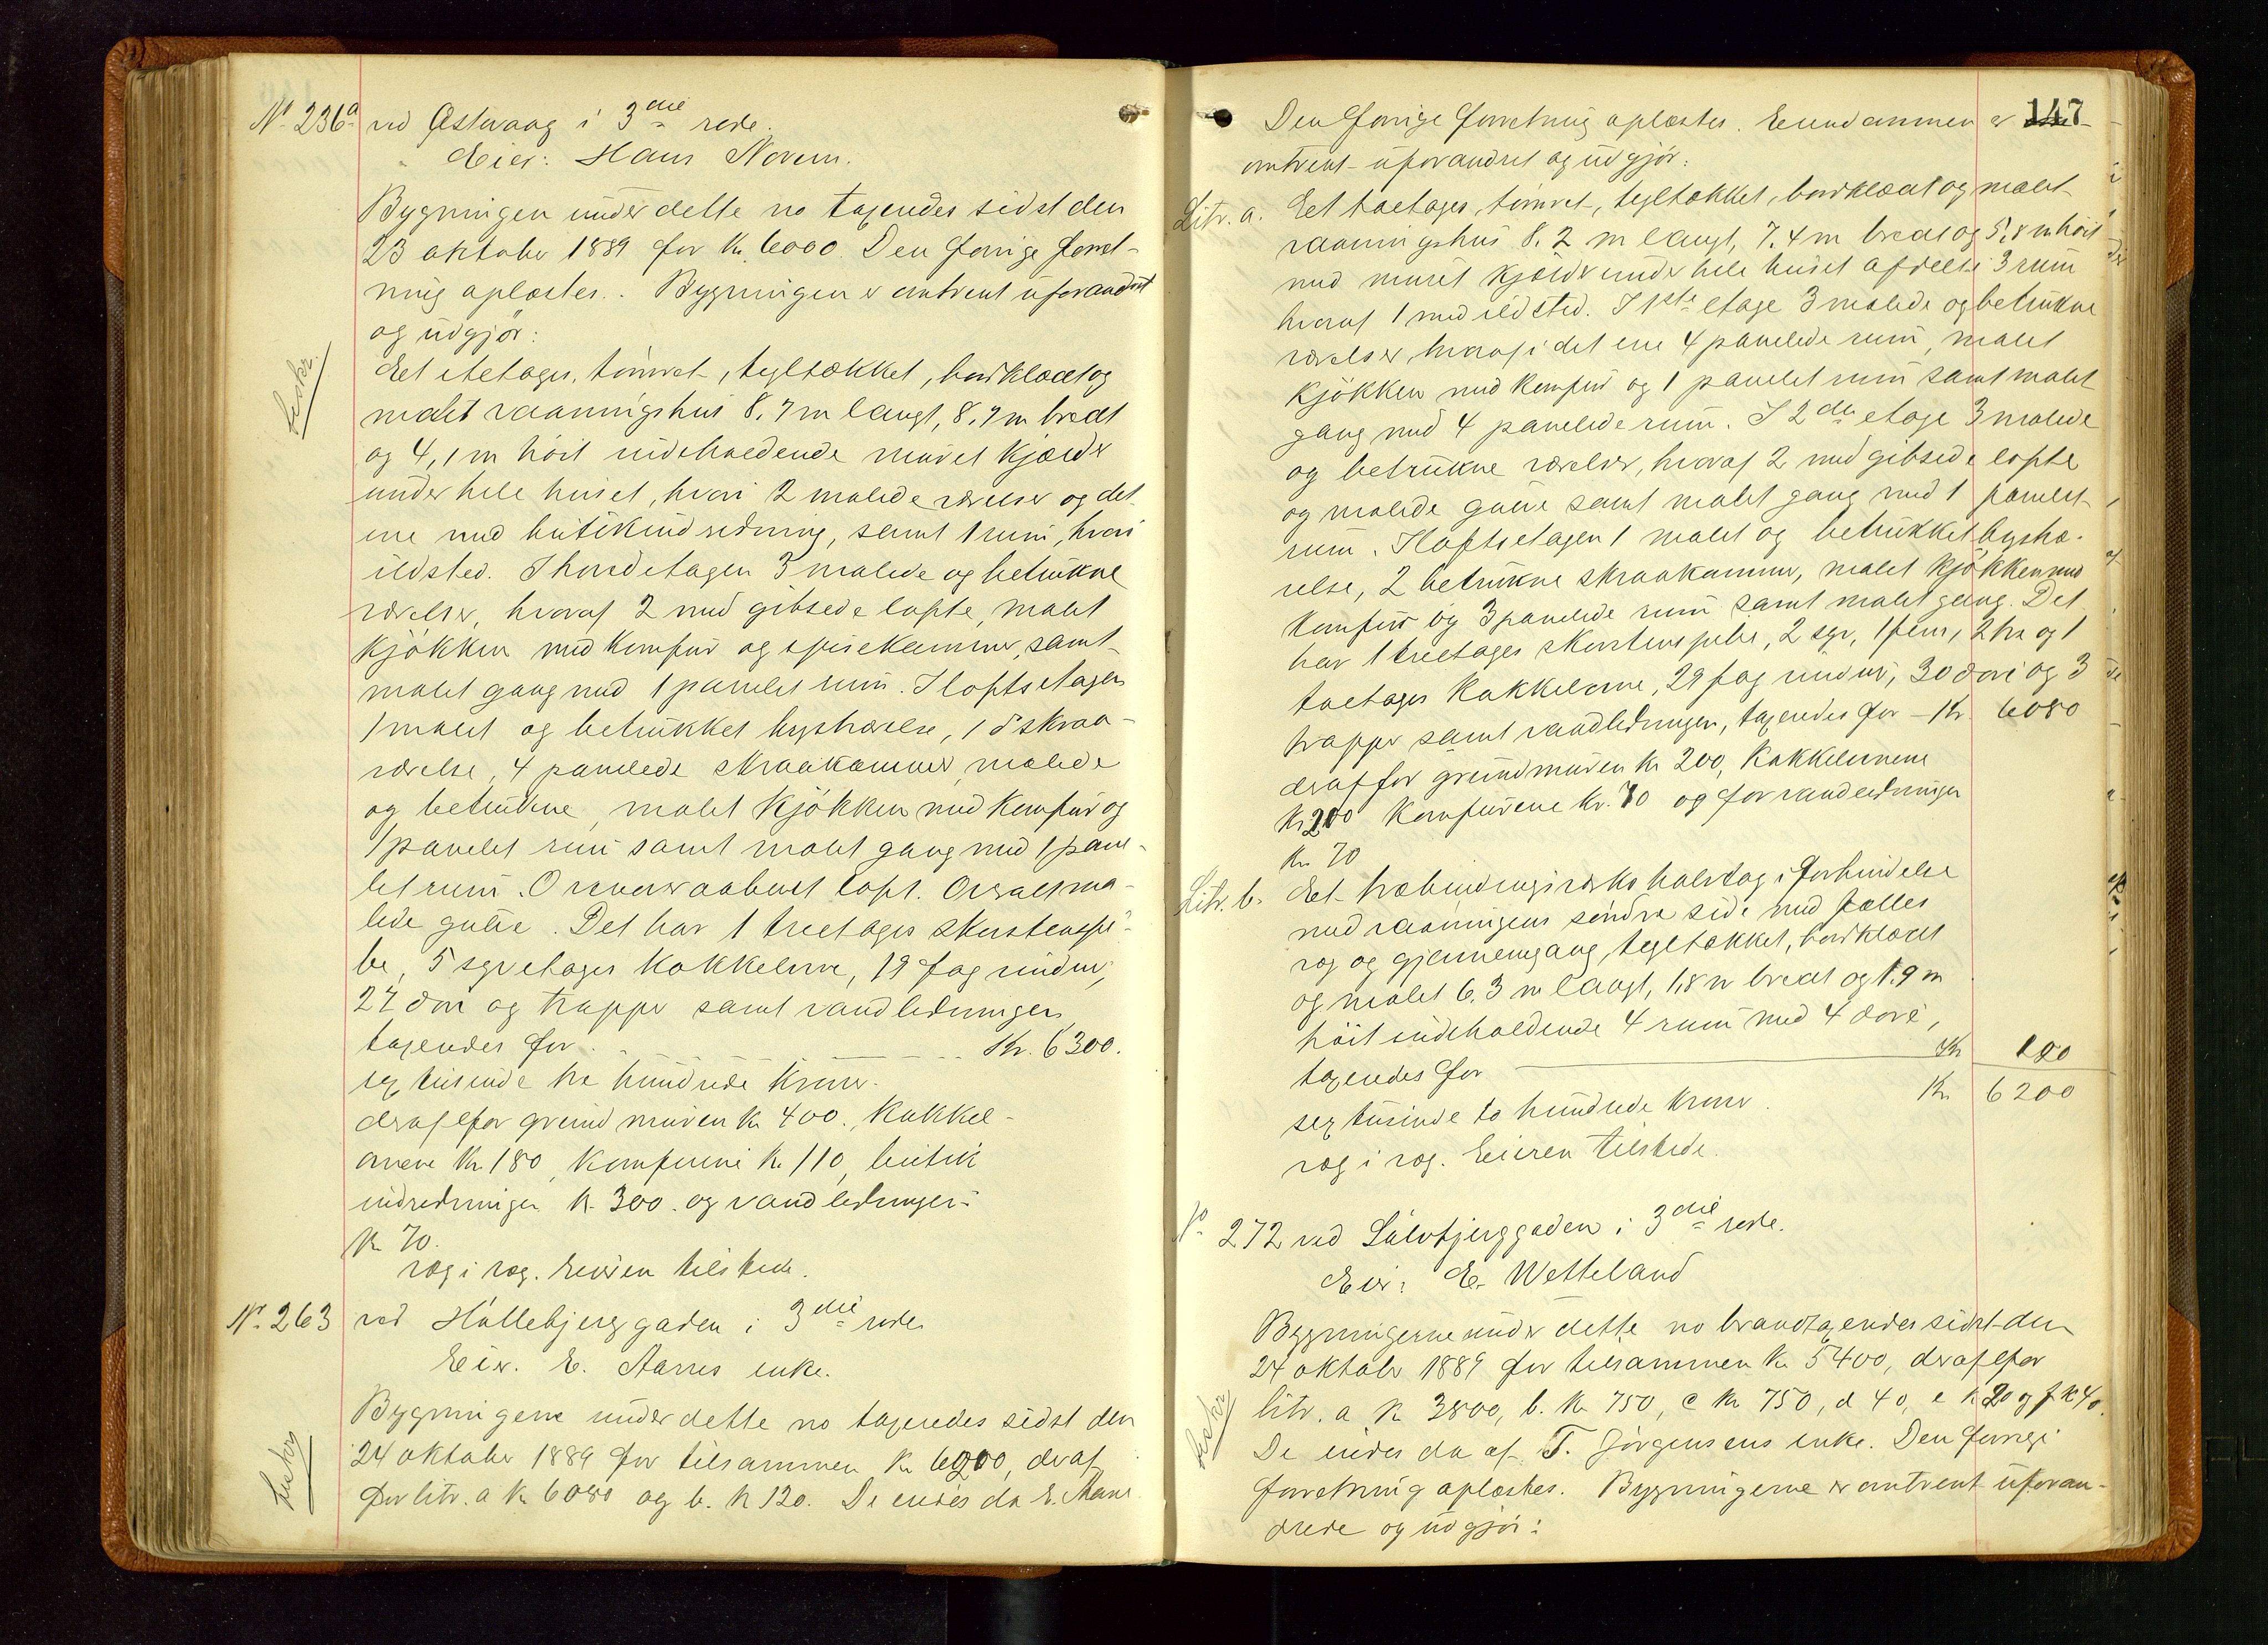 No 236a ved Østervaag i 3die rode.
Eier: Hans Norem.
Bygningen under dette no taxeredes sidst den
23 oktober 1889 for Kr. 6000. Den forrige forret-
ning oplæstes. Bygningen er omtrent uforandret
og udgjør:
beskr.
Eet etetages, tømret, tegltækket, bordklædt og
malet vaaningshus 8,7 m langt, 8,7 m bredt
og 4,1 m høit indeholdende muret kjælder
under hele huset, hvori 2 malede værelser og det
ene med butikindredning, samt 1 rum, hvori
ildsted. I hovedetagen 3 malede og betrukne
værelser, hvoraf 2 med gibsede lofte, malet
kjøkken med komfur og spisekammer, samt
malet gang med 1 panelet rum. I loftsetagen
1 malet og betrukket kvistværelse, 1 do skraa-
værelse, 4 panelede skraakammer, malede
og betrukne, malet kjøkken med komfur og
1 panelet rum samt malet gang med 1 pane-
let rum. Ovenover aabent loft. Overalt ma-
lede gulve. Det har 1 treetages skorstenspi-
be, 5 syvetages kakkelovne, 19 fag vinduer,
27 døre og trapper samt vandledningen
taxeredes for Kr. 6300.
sex tusinde tre hundrede kroner.
deraf for grundmuren Kr 400, kakkel-
ovnene Kr 180, komfurene Kr. 110, butik
indredningen Kr 300 og vandledningen
Kr 70.
væg i væg. Eieren tilstede.
No 263 ved Hollebjerggaden i 3die rode
Eier. E. Aarres enke.
Bygningerne under dette no taxeredes sidst den
24 oktober 1889 for tilsammen Kr 6200, deraf
beskr
for litr. a Kr 6080 og b. Kr 120. De eiedes da E. Aarre
147
Den forrige forretning oplæstes. Eiendommen er
omtrent uforandret og udgjør:
Litr. a. Eet toetages, tømret, tegltækket, bordklædt og malet
vaaningshus 8,2 m langt, 7,4 m bredt og 5,8 m høit
med muret kjælder under hele huset afdelt i 3 rum
hvoraf 1 med ildsted. I 1ste etage 3 malede og betrukne
værelser, hvoraf i det ene 4 panelede rum, malet
kjøkken med komfur og 1 panelet rum samt malet
gang med 4 panelede rum. I 2den etage 3 malede
og betrukne værelser, hvoraf 2 med gibsede lofte
og malede gulve samt malet gang med 1 panelet
rum. I loftsetagen 1 malet og betrukket kvistvæ-
relse, 2 betrukne skraakammer, malet kjøkken med
komfur og 3 panelede rum samt malet gang. Det
har 1 treetages skorstenspibe, 2 syv, 1 fem, 2 tre og 1
toetages kakkelovne, 29 fag vinduer, 30 døre og 3
trapper samt vandledningen, taxeredes for Kr 6080
deraf for grundmuren Kr 200, kakkelovnene
Kr 200 komfurene Kr. 70 og for vandledningen
Kr 70
Litr. b. Et træbindingsverks halvtag i forbindelse
med vaaningens søndre side med fælles
væg og gjennemgang, tegltækket, bordklædt
og malet 6,3 m langt, 1,8 m bredt og 1,9 m
høit indeholdende 4 rum med 4 døre,
taxeredes for Kr 120
Kr 6200
sex tusinde to hundrede kroner.
væg i væg. Eieren tilstede.
No 272 ved Sølvbjerggaden i 3die rode.
Eier: E. Wetteland
Bygningerne under dette no brandtaxeredes sidst den
24 oktober 1889 for tilsammen Kr 5400, deraf for
litr. a Kr 3800, b. Kr 750, c Kr 750, d 40, e Kr 20 og f Kr 40.
beskr.
De eiedes da af T. Jørgensens enke. Den forrige
forretning oplæstes. Bygningerne er omtrent uforan-
drede og udgjør: